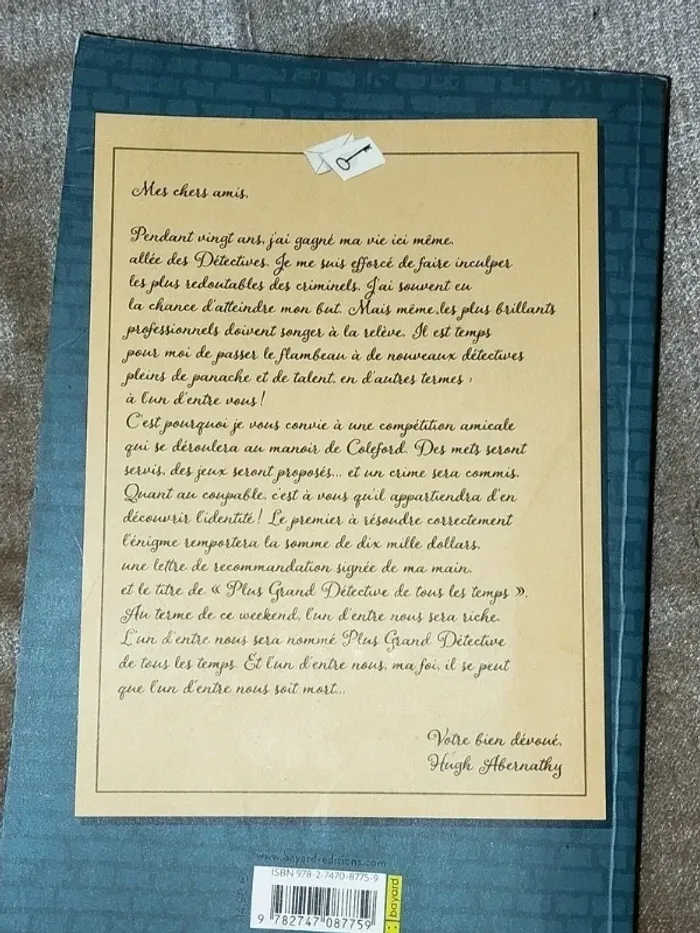 Mes chers amis,
Pendant vingt ans, j'ai gagné ma vie ici même,
allée des Détectives. Je me suis efforcé de faire inculper
les plus redoutables des criminels. J'ai souvent eu
la chance d'atteindre mon but. Mais même les plus brillants
professionnels doivent songer à la relève. Il est temps
pour moi de passer le flambeau à de nouveaux détectives
pleins de panache et de talent, en d'autres termes :
à l'un d'entre vous !
C'est pourquoi je vous convie à une compétition amicale
qui se déroulera au manoir de Coleford. Des mets seront
servis, des jeux seront proposés... et un crime sera commis.
Quant au coupable, c'est à vous qu'il appartiendra d'en
découvrir l'identité ! Le premier à résoudre correctement
l'énigme remportera la somme de dix mille dollars,
une lettre de recommandation signée de ma main,
et le titre de « Plus Grand Détective de tous les temps ».
Au terme de ce weekend, l'un d'entre nous sera riche.
L'un d'entre nous sera nommé Plus Grand Détective
de tous les temps. Et l'un d'entre nous, ma foi, il se peut
que l'un d'entre nous soit mort...
Votre bien dévoué,
Hugh Abernathy
www.bayard-editions.com
ISBN 978-2-7470-8775-9
9 782747 087759
bayard